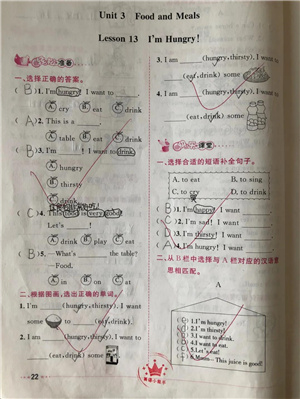 Unit 3 Food and Meals
Lesson 13 I'm Hungry!
准备
一、选择正确的答案。
( B )1. I'm hungry! I want to
A. cry B. eat C. drink
( A )2. This is a
A. table B. eat C. drink
( B )3. I'm ! I want to drink.
A. hungry
B. thirsty
C. drink
( C )4. This food is very good!
Let's !
A. drink B. play C. eat
( B )5. —What's the table?
—Food.
A. in B. on C. at
二、根据图画,选出正确的单词。
1. I'm (hungry, thirsty), I want to
(eat, drink) some
2. I am (hungry, thirsty), I want to
(eat, drink) some
22
3. I am (hungry, thirsty), I want to
(eat, drink) some
4. I'm (hungry, thirsty), I want to
(eat, drink) some
课堂
一、选择合适的短语补全句子。
A. to eat B. to sing
C. to cry D. to drink
( B )1. I'm happy! I want
2. I'm sad! I want
3. I'm thirsty! I want
( A )4. I'm hungry! I want
二、从B栏中选择与A栏对应的汉语意
思相匹配。
1. I'm hungry!
2. I'm thirsty!
3. I want to drink.
4. I want to eat.
5. Let's eat!
6. Mom— This juice is good!